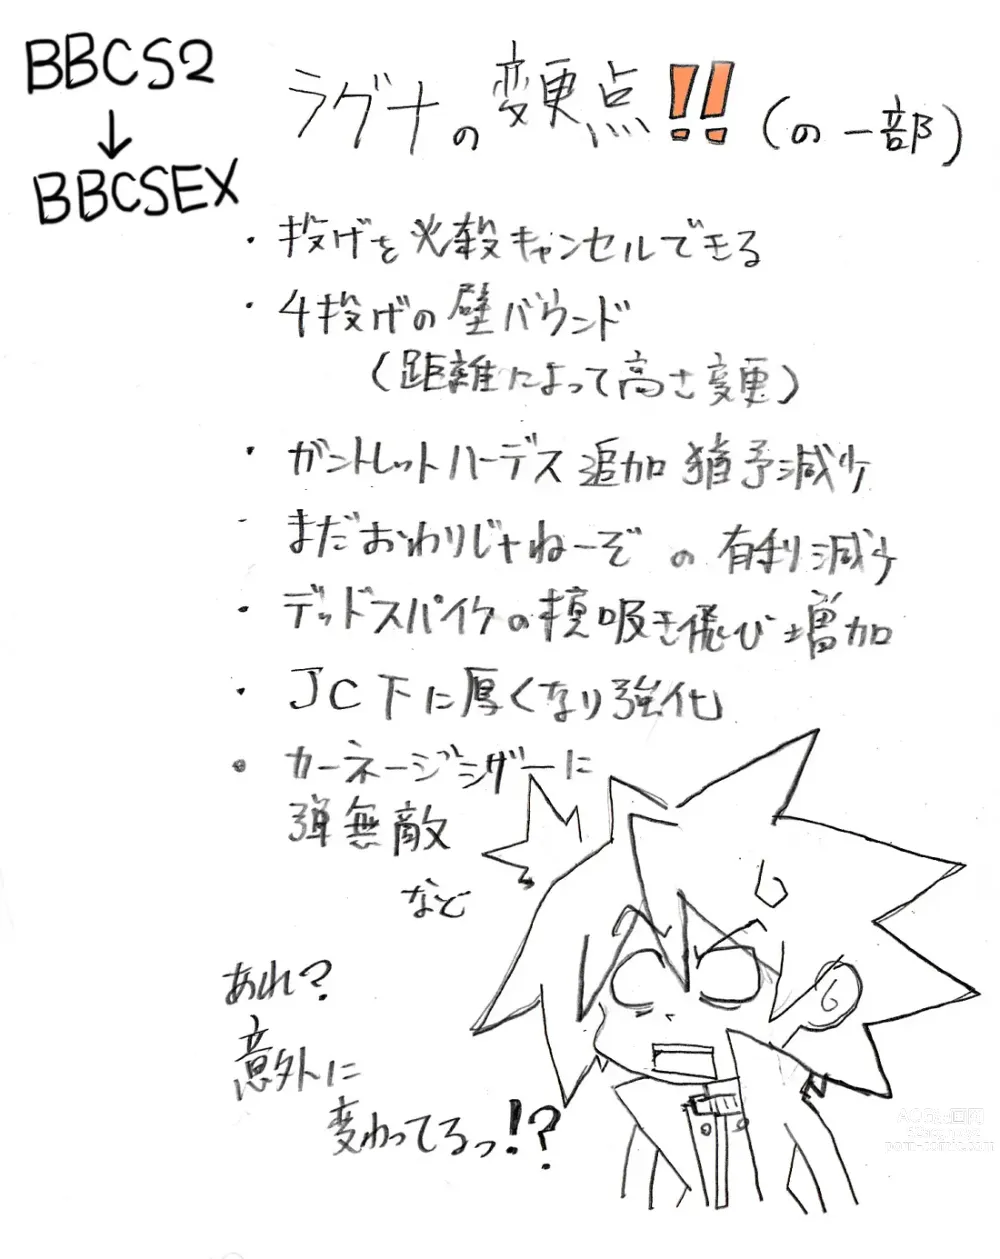 BBCS2
↓
BBCSEX
ラグナの変更点!!(の一部)
・投げを必殺キャンセルできる
・4投げの壁バウンド
(距離によって高さ変更)
・ガントレットハーデス追加 猶予減少
・まだおわりじゃねーぞ の 有利減少
・デッドスパイクの横吹き飛び増加
・JC下に厚くなり強化
・カーネージシザーに
弾無敵
など
あれ?
意外に
変わってるっ!?